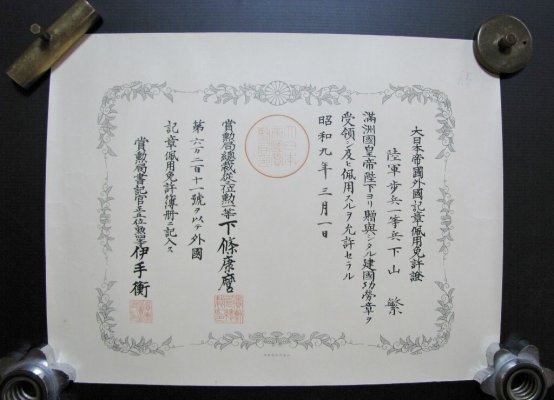 大日本帝國外國記章佩用免許證
陸軍歩兵一等兵下山繁
滿洲國皇帝陛下ヨリ贈與シタル建國功勞章ヲ
受領シ及ヒ佩用スルヲ允許セラル
昭和九年三月一日
賞勲局總裁從三位勲一等下條康麿
第六万二百十一號ヲ以テ外國
記章佩用免許簿册ニ記入ス
賞勲局書記官正五位勲四等伊手衡